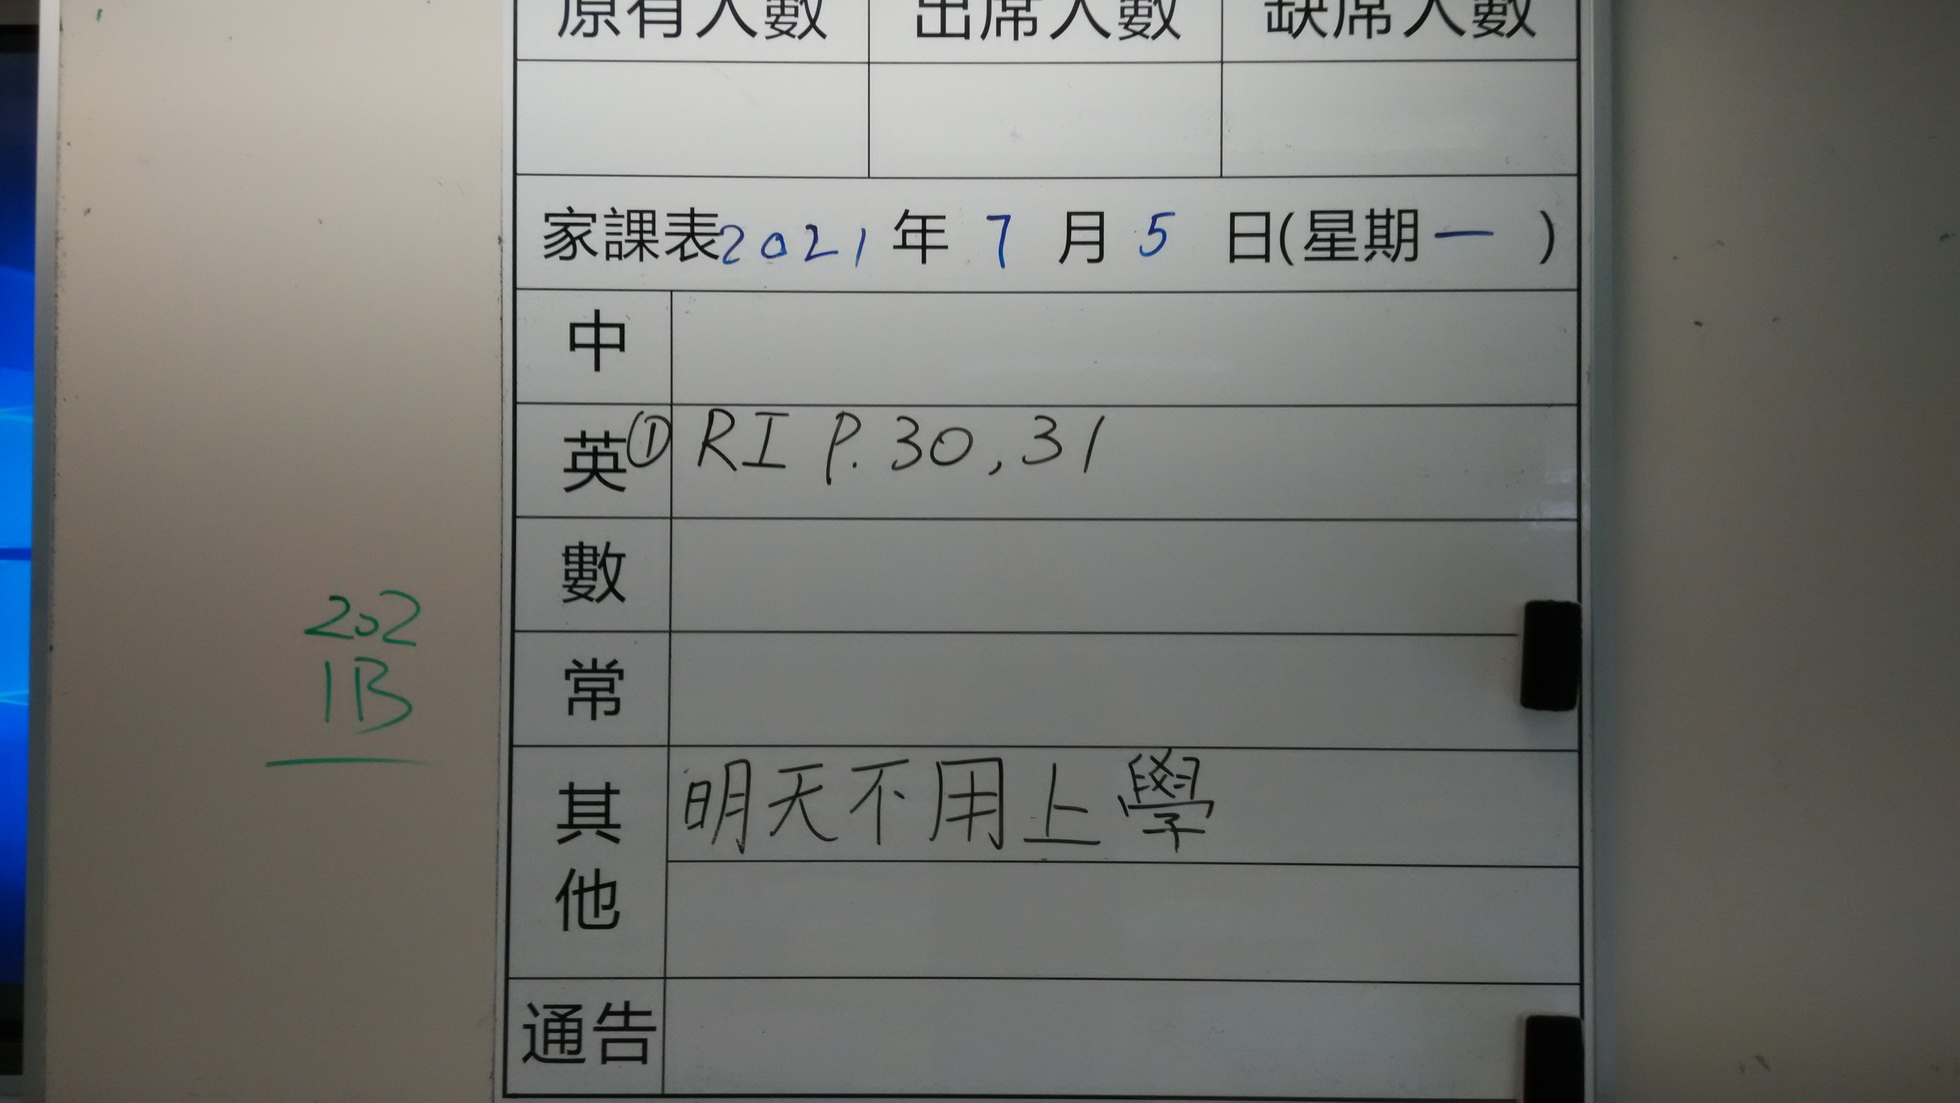 原有人數 出席人數 缺席人數
家課表2021年7月5日(星期一)
中
英 ① RI P.30,31
數
常
其他 明天不用上學
通告
202
1B